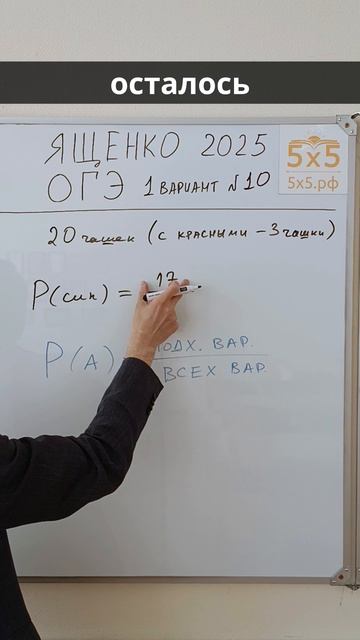 осталось
ЯЩЕНКО 2025
5х5
ОГЭ 1 ВАРИАНТ №10
5х5.рф
20 чашек (с красными - 3 чашки)
17
Р(син) =
Р(А) ПОДХ. ВАР.
ВСЕХ ВАР.